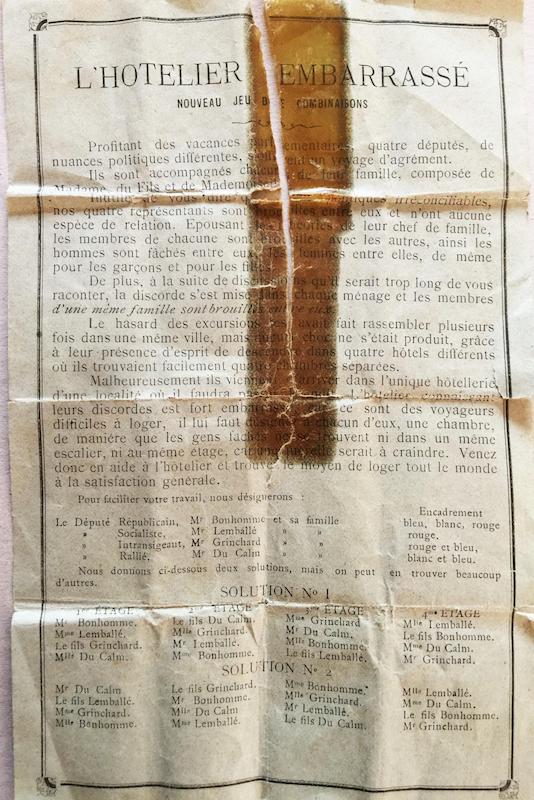 L'HOTELIER EMBARRASSÉ
NOUVEAU JEU DE COMBINAISONS
Profitant des vacances parlementaires, quatre députés, de
nuances politiques différentes, s'offrent un voyage d'agrément.
Ils sont accompagnés chacun de leur famille, composée de
Madame, du Fils et de Mademoiselle
Inutile de vous dire que politiques irréconciliables,
nos quatre représentants sont brouillés entre eux et n'ont aucune
espèce de relation. Epousant les théories de leur chef de famille,
les membres de chacune sont brouillés avec les autres, ainsi les
hommes sont fâchés entre eux, les femmes entre elles, de même
pour les garçons et pour les filles.
De plus, à la suite de discussions qu'il serait trop long de vous
raconter, la discorde s'est mise dans chaque ménage et les membres
d'une même famille sont brouillés entre eux.
Le hasard des excursions les avait fait rassembler plusieurs
fois dans une même ville, mais aucun choc ne s'était produit, grâce
à leur présence d'esprit de descendre dans quatre hôtels différents
où ils trouvaient facilement quatre chambres séparées.
Malheureusement ils viennent d'arriver dans l'unique hôtellerie
d'une localité où il faudra passer l'hôtelier connaissant
leurs discordes est fort embarrassé, car ce sont des voyageurs
difficiles à loger, il lui faut désigner à chacun d'eux, une chambre,
de maniére que les gens fachés ne se trouvent ni dans un même
escalier, ni au même étage, car une querelle serait à craindre. Venez
donc en aide à l'hôtelier et trouvez le moyen de loger tout le monde
à la satisfaction générale.
Pour faciliter votre travail, nous désignerons :
Encadrement
Le Député Républicain, Mr Bonhomme et sa famille bleu, blanc, rouge
» Socialiste, Mr Lemballé » » rouge.
» Intransigeant, Mr Grinchard » » rouge et bleu,
» Rallié, Mr Du Calm » » blanc et bleu.
Nous donnons ci-dessous deux solutions, mais on peut en trouver beaucoup
d'autres.
SOLUTION No 1
1er ÉTAGE 2me ÉTAGE 3me ÉTAGE 4me ÉTAGE
Mr Bonhomme. Le fils Du Calm. Mme Grinchard Mlle Lemballé.
Mme Lemballé. Mlle Grinchard. Mr Du Calm. Le fils Bonhomme.
Le fils Grinchard. Mr Lemballé. Mlle Bonhomme. Mme Du Calm.
Mlle Du Calm. Mme Bonhomme. Le fils Lemballé. Mr Grinchard.
SOLUTION No 2
Mr Du Calm Le fils Grinchard. Mme Bonhomme. Mlle Lemballé.
Le fils Lemballé. Mr Bonhomme. Mlle Grinchard. Mme Du Calm.
Mme Grinchard. Mlle Du Calm. Mr Lemballé. Le fils Bonhomme.
Mlle Bonhomme. Mme Lemballé. Le fils Du Calm. Mr Grinchard.